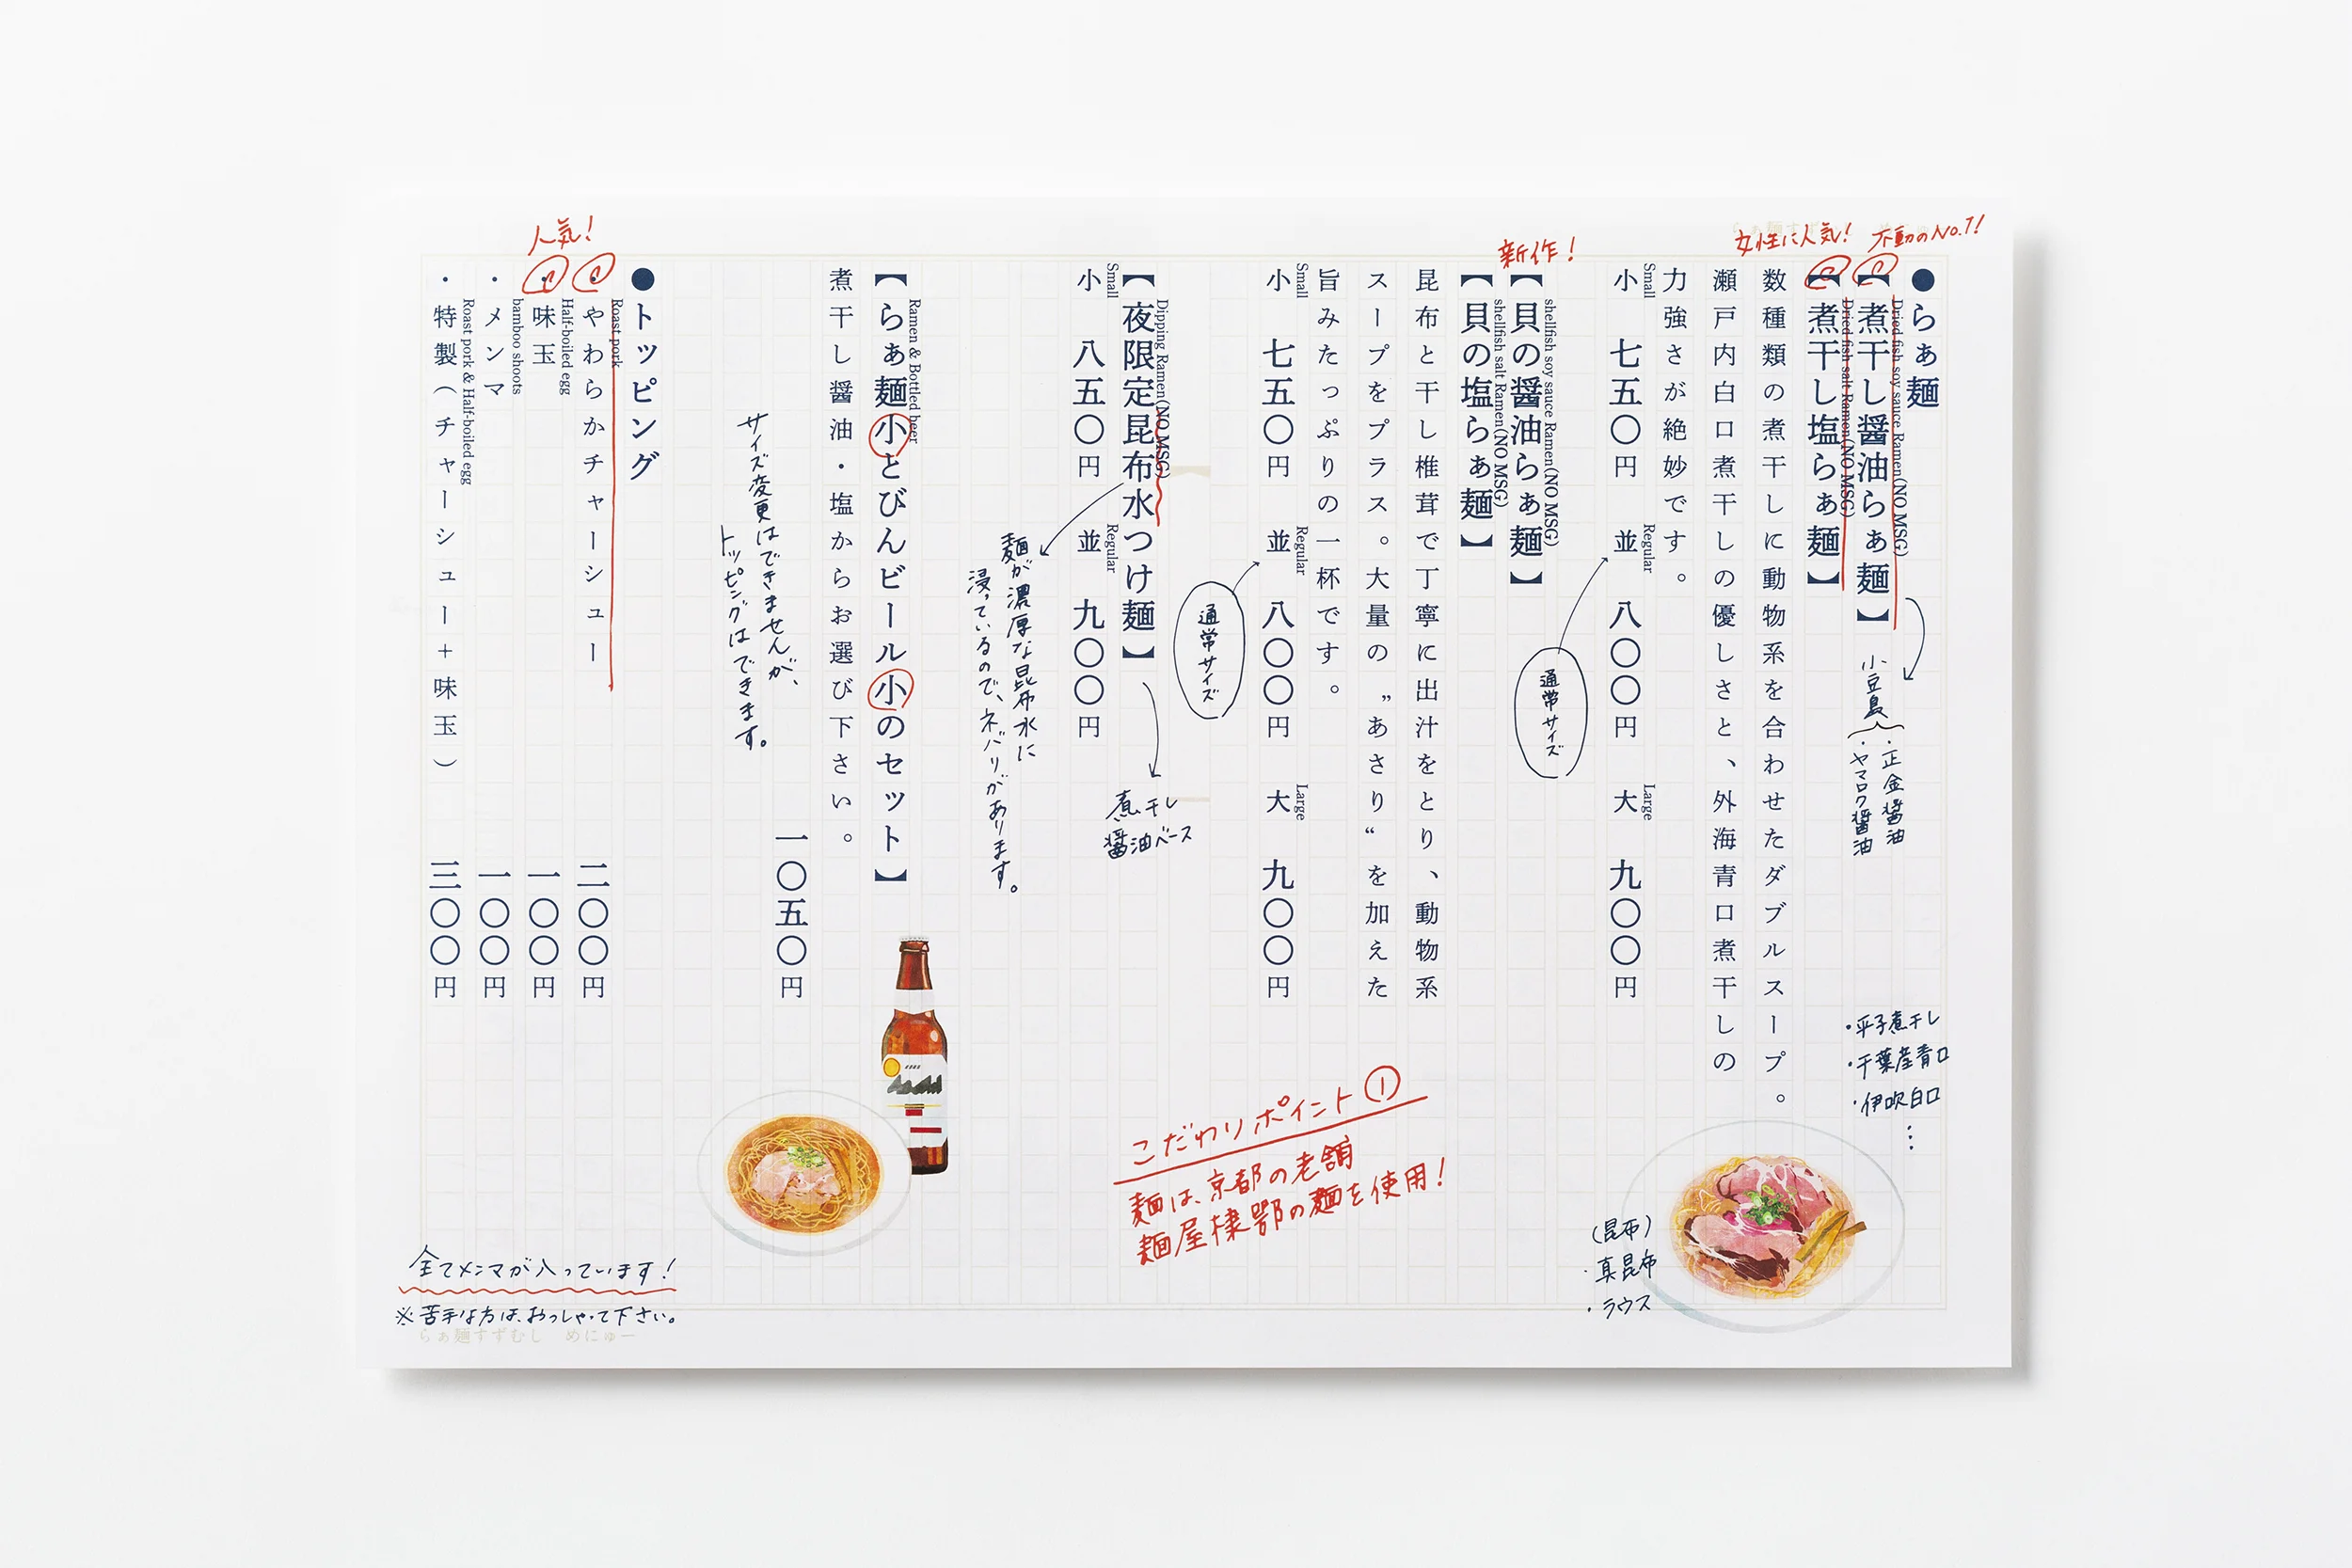 らぁ麺すずむし めにゅー
不動のNo.1!
女性に人気!
●らぁ麺
【煮干し醤油らぁ麺】
Dried fish soy sauce Ramen(NO MSG)
小豆島
・正金醤油
・ヤマロク醤油
【煮干し塩らぁ麺】
Dried fish salt Ramen(NO MSG)
・平子煮干し
・千葉産青口
・伊吹白口
…
数種類の煮干しに動物系を合わせたダブルスープ。
瀬戸内白口煮干しの優しさと、外海青口煮干しの
力強さが絶妙です。
小 七五〇円 並 八〇〇円 大 九〇〇円
Small Regular Large
通常サイズ
(昆布)
・真昆布
・ラウス
新作!
【貝の醤油らぁ麺】
shellfish soy sauce Ramen(NO MSG)
【貝の塩らぁ麺】
shellfish salt Ramen(NO MSG)
昆布と干し椎茸で丁寧に出汁をとり、動物系
スープをプラス。大量の〟あさり〝を加えた
旨みたっぷりの一杯です。
小 七五〇円 並 八〇〇円 大 九〇〇円
Small Regular Large
通常サイズ
こだわりポイント①
麺は、京都の老舗
麺屋棣鄂の麺を使用!
【夜限定昆布水つけ麺】
Dipping Ramen(NO MSG)
煮干し
醤油ベース
小 八五〇円 並 九〇〇円
Small Regular
麺が濃厚な昆布水に
浸っているので、ネバリがあります。
【らぁ麺小とびんビール小のセット】
Ramen & Bottled beer
煮干し醤油・塩からお選び下さい。
一〇五〇円
サイズ変更はできませんが、
トッピングはできます。
●トッピング
人気!
・やわらかチャーシュー 二〇〇円
Roast pork
・味玉 一〇〇円
Half-boiled egg
・メンマ 一〇〇円
bamboo shoots
・特製(チャーシュー+味玉) 三〇〇円
Roast pork & Half-boiled egg
全てメンマが入っています!
※苦手な方は、おっしゃって下さい。
らぁ麺すずむし めにゅー